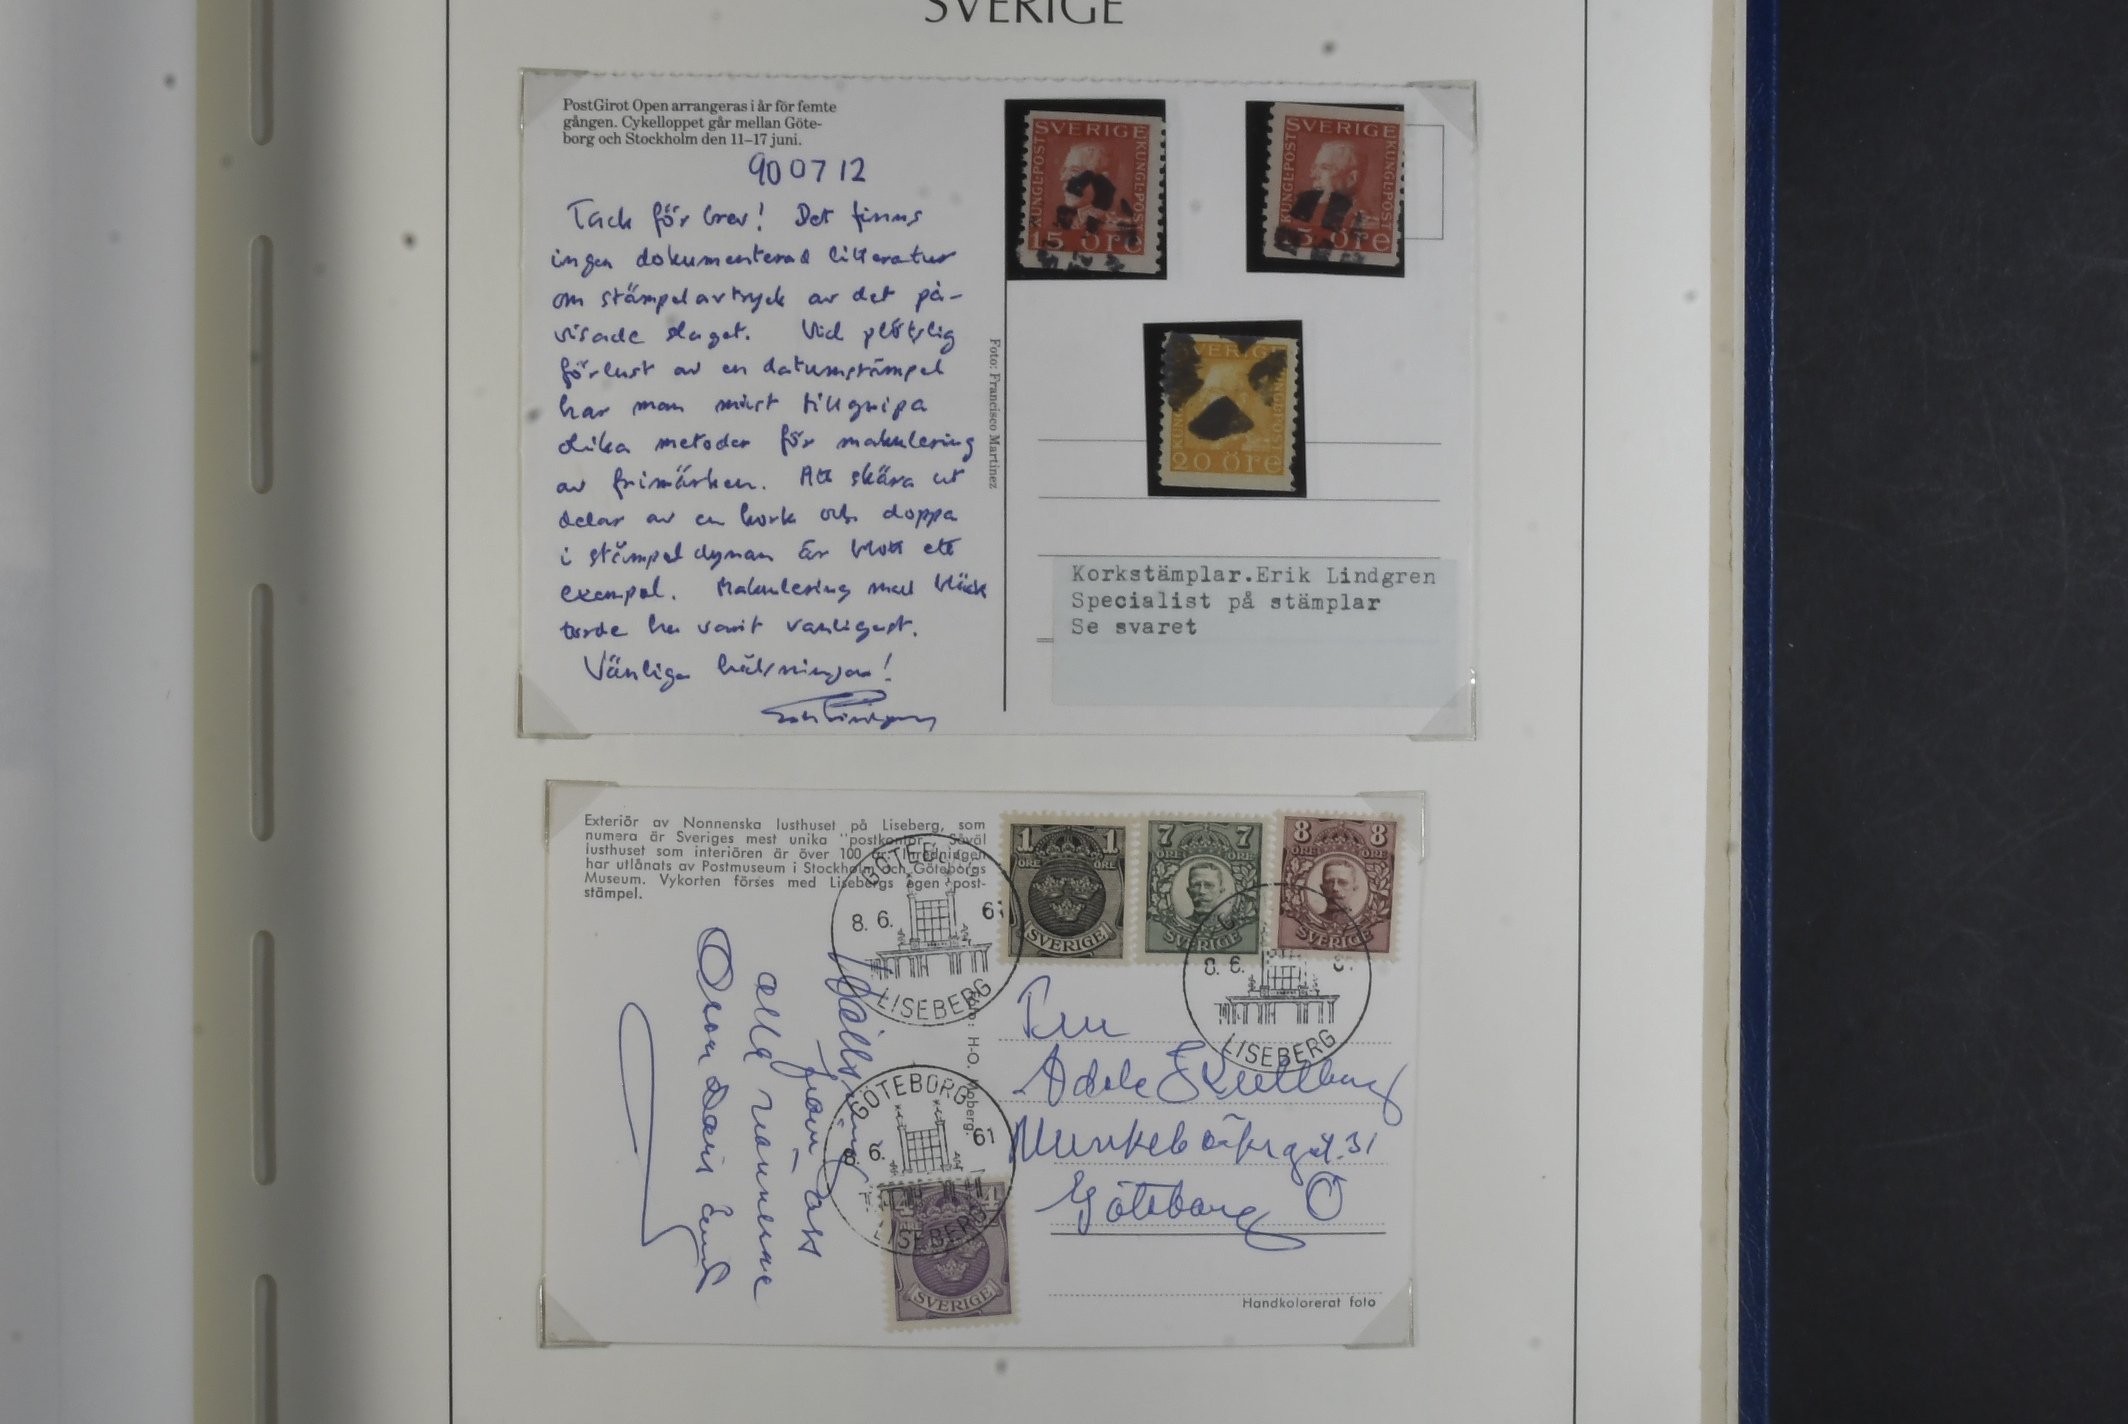 SVERIGE
PostGirot Open arrangeras i år för femte
gången. Cykelloppet går mellan Göte-
borg och Stockholm den 11–17 juni.
900712
Tack för brev! Det finns
ingen dokumenterad litteratur
om stämpelavtryck av det på-
visade slaget. Vid plötslig
förlust av en datumstämpel
har man måst tillgripa
olika metoder för makulering
av frimärken. Att skära ut
delar av en kork och doppa
i stämpeldynan är blott ett
exempel. Makulering med bläck
torde ha varit vanligast.
Vänliga hälsningar!
Foto: Francisco Martinez
SVERIGE
KUNGL·POST
KUNGL·POST
15 öre
SVERIGE
KUNGL·POST
KUNGL·POST
5 öre
VERIGE
20 öre
Korkstämplar.Erik Lindgren
Specialist på stämplar
Se svaret
Exteriör av Nonnenska lusthuset på Liseberg, som
numera är Sveriges mest unika "postkontor". Såväl
lusthuset som interiören är över 100 år. Inredningen
har utlånats av Postmuseum i Stockholm och Göteborgs
Museum. Vykorten förses med Lisebergs egen post-
stämpel.
1 1
ÖRE ÖRE
SVERIGE
7 7
ÖRE ÖRE
SVERIGE
8 8
ÖRE ÖRE
SVERIGE
GÖTEB
8. 6. 61
LISEBERG
8. 6.
LISEBERG
GÖTEBORG
8. 6. 61
LISEBERG
4
ÖRE
SVERIGE
Foto: H-O. Moberg.
från oss
alla
Fru
Adele
Munkebäcksgat. 31
Göteborg Ö
Handkolorerat foto